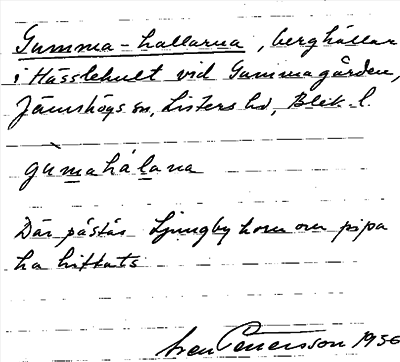 Gumma-hallarna, berghällar
i Hässlehult vid Gummagården,
Jämshögs sn, Listers hd, Blek. l.
gumahálana
Där påstås Ljungby horn om pipa
ha hittats
Sven Petersson 1950